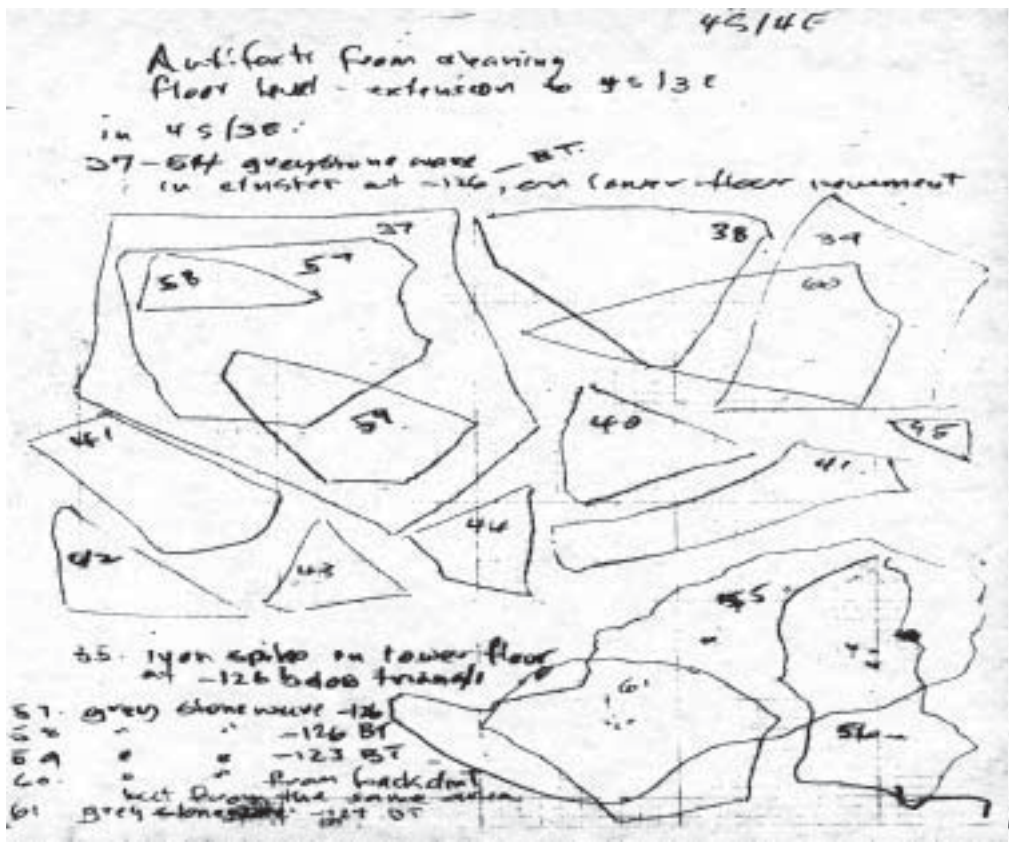 4S/4E
Artifacts from cleaning
floor level - extension to 4S/3E
in 4S/3E.
37-54 grey stoneware - BT.
in cluster at -126, on lower floor
37
38
39
58
57
60
59
40
45
41
41
44
42
43
55
61
56
55. iron spike on lower floor
at -126 below triangle
57. grey stoneware -126
58 " " -126 BT
59 " " -123 BT
60. " " from backdirt
but from the same area
61 grey stoneware BT